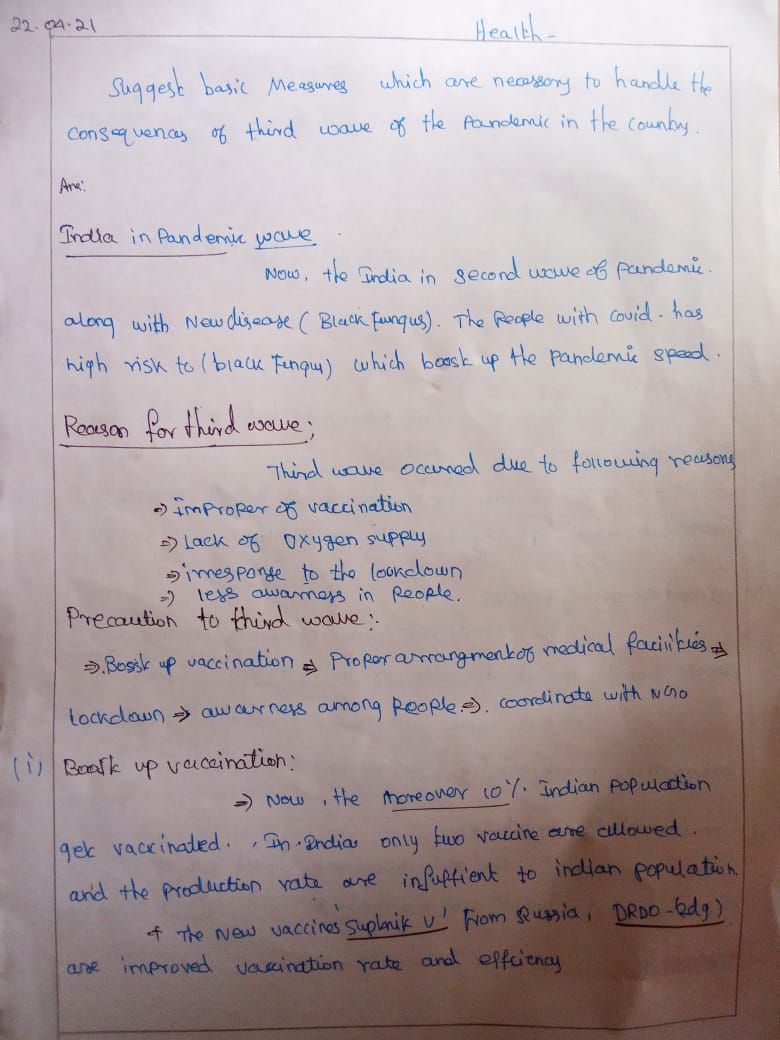 22.04.21
Health-
Suggest basic Measures which are necessory to handle the
consequences of third wave of the Pandemic in the country.
Ans:
India in Pandemic wave
Now, the India in second wave of Pandemic.
along with New disease (Black Fungus). The People with covid. has
high risk to (black Fungus) which boost up the Pandemic speed.
Reason for third wave;
Third wave occured due to following reasons
=> improper of vaccination
=> Lack of Oxygen supply
=> irresponse to the lockdown
=> less awarness in People.
Precaution to third wave:
=> Boost up vaccination => Proper arrangment of medical facilities =>
Lockdown => awarness among People. =>. coordinate with NGO
(i) Boost up vaccination:
=> Now, the moreover 10% Indian Population
get vaccinated. In India only two vaccine are allowed.
and the production rate are insuffient to indian population.
The New vaccines 'Suptnik V' From Russia, DRDO-(2dg)
are improved vaccination rate and effciency